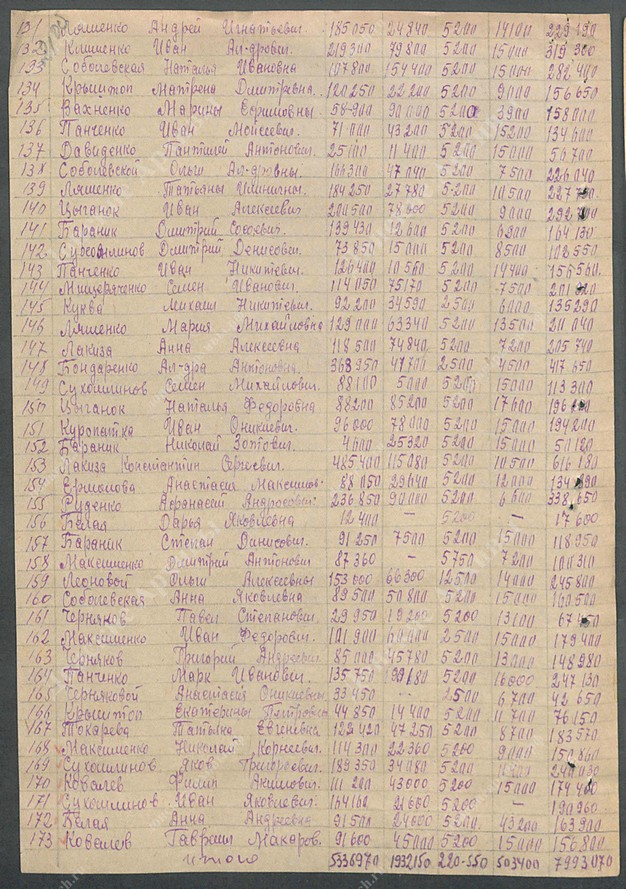 131 Ляшенко Андрей Игнатьевич. 185050 24840 5200 14100 229190
132 Клименко Иван Ал-дрович. 219300 79800 5200 15000 319300
133 Соболевская Наталья Ивановна 107800 154400 5200 15000 282400
134 Крыштоп Матрена Дмитревна. 120250 22200 5200 9000 156650
135 Вахненко Марины Ефимовны 58-900 90000 5200 3900 158000
136 Панченко Иван Моисеевич. 71000 43200 5200 15200 134600
137 Давиденко Пантилей Антонович. 25100 11400 5200 15000 56700
138 Соболевской Ольги Ал-дровны. 166300 47040 5200 7500 226040
139 Ляшенко Татьяны 184250 27780 5200 10500 227730
140 Цыганок Иван Алексеевич 200500 78600 5200 9000
141 Бараник Дмитрий 139430 12600 5200 6900 164130
142 Сухомлинов Дмитрий Денисович. 73850 15000 5200 8500 102550
143 Панченко Иван Никитевич. 126400 10560 5200 14400 156560
144 Семен Иванович. 114050 75170 5200 7500
145 Куква Михаил Никитевич. 92200 34590 2500 6000 135290
146 Ляшенко Мария Михайловна 129000 63340 5200 13500 211040
147 Лакиза Анна Алексеевна 118500 74840 5200 7200 205740
148 Бондаренко Ал-дра Антоновна. 368950 41700 2500 4500 417650
149 Сухомлинов Семен Михайлович. 88100 5000 5200 15000 113300
150 Цыганок Наталья Федоровна 88200 85200 5200 17600
151 Куропатка Иван Оникиевич. 96000 78000 5200 15000 194200
152 Бараник Николай Зотович. 4600 25320 5200 15000 50120
153 Лакиза Константин Сергеевич. 485400 115080 5200 10500 616180
154 Ермолова Анастасия Максимов. 88050 29640 5200 12000
155 Руденко Афанасий Андросович. 236850 90000 5200 6600 338650
156 Белая Дарья Яковлевна 12400 — 5200 — 17600
157 Бараник Степан Данисович. 91250 7500 5200 15000 118950
158 Максименко Дмитрий Антонович 87360 — 5750 7200 100310
159 Леоновой Ольги Алексеевны 153000 66300 12500 14000 245800
160 Соболевская Анна Яковлевна 89500 50800 5200 15000 160500
161 Черняков Павел Степанович. 29950 19200 5200 13100 67450
162 Максименко Иван Федорович. 101900 60000 2500 15000 179400
163 Черняков Григорий Андреевич. 85000 45780 5200 13000 148980
164 Панченко Марк Иванович. 135750 5200 16000 247130
165 Черняковой Анастасия Оникиевны 33450 — 2500 6700 42650
166 Крыштоп Екатерины Петровны 44850 14400 5200 11700 76150
167 Токарева Татьяна Евгеневна. 122420 47250 5200 8700 183570
168 Максименко Николай Корневич. 114300 22360 5200 9000 150860
169 Сухомлинов Яков Григоревич. 189350 34080 5200
170 Ковалев Филип 111200 43000 5200 15000 174400
171 Сухомлинов Иван Яковлевич. 164162 21600 5200 — 190960
172 Белая Анна Андреевна 91500 24000 5200 43200 163900
173 Ковалев Гаврила Макаров. 91600 45000 5200 15000 156800
итого 5336970 1932150 220-550 503400 7993070